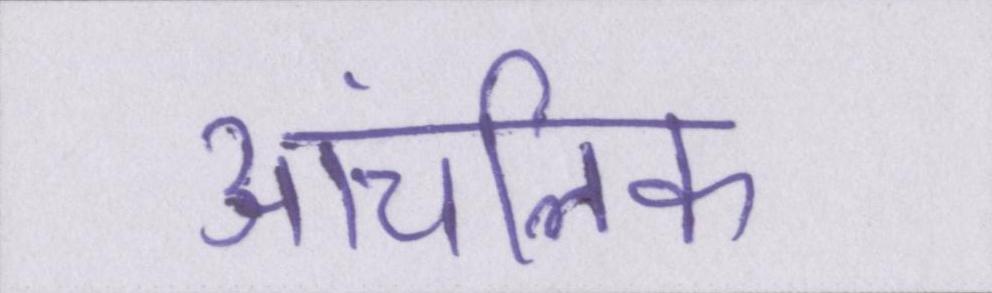 आंचलिक